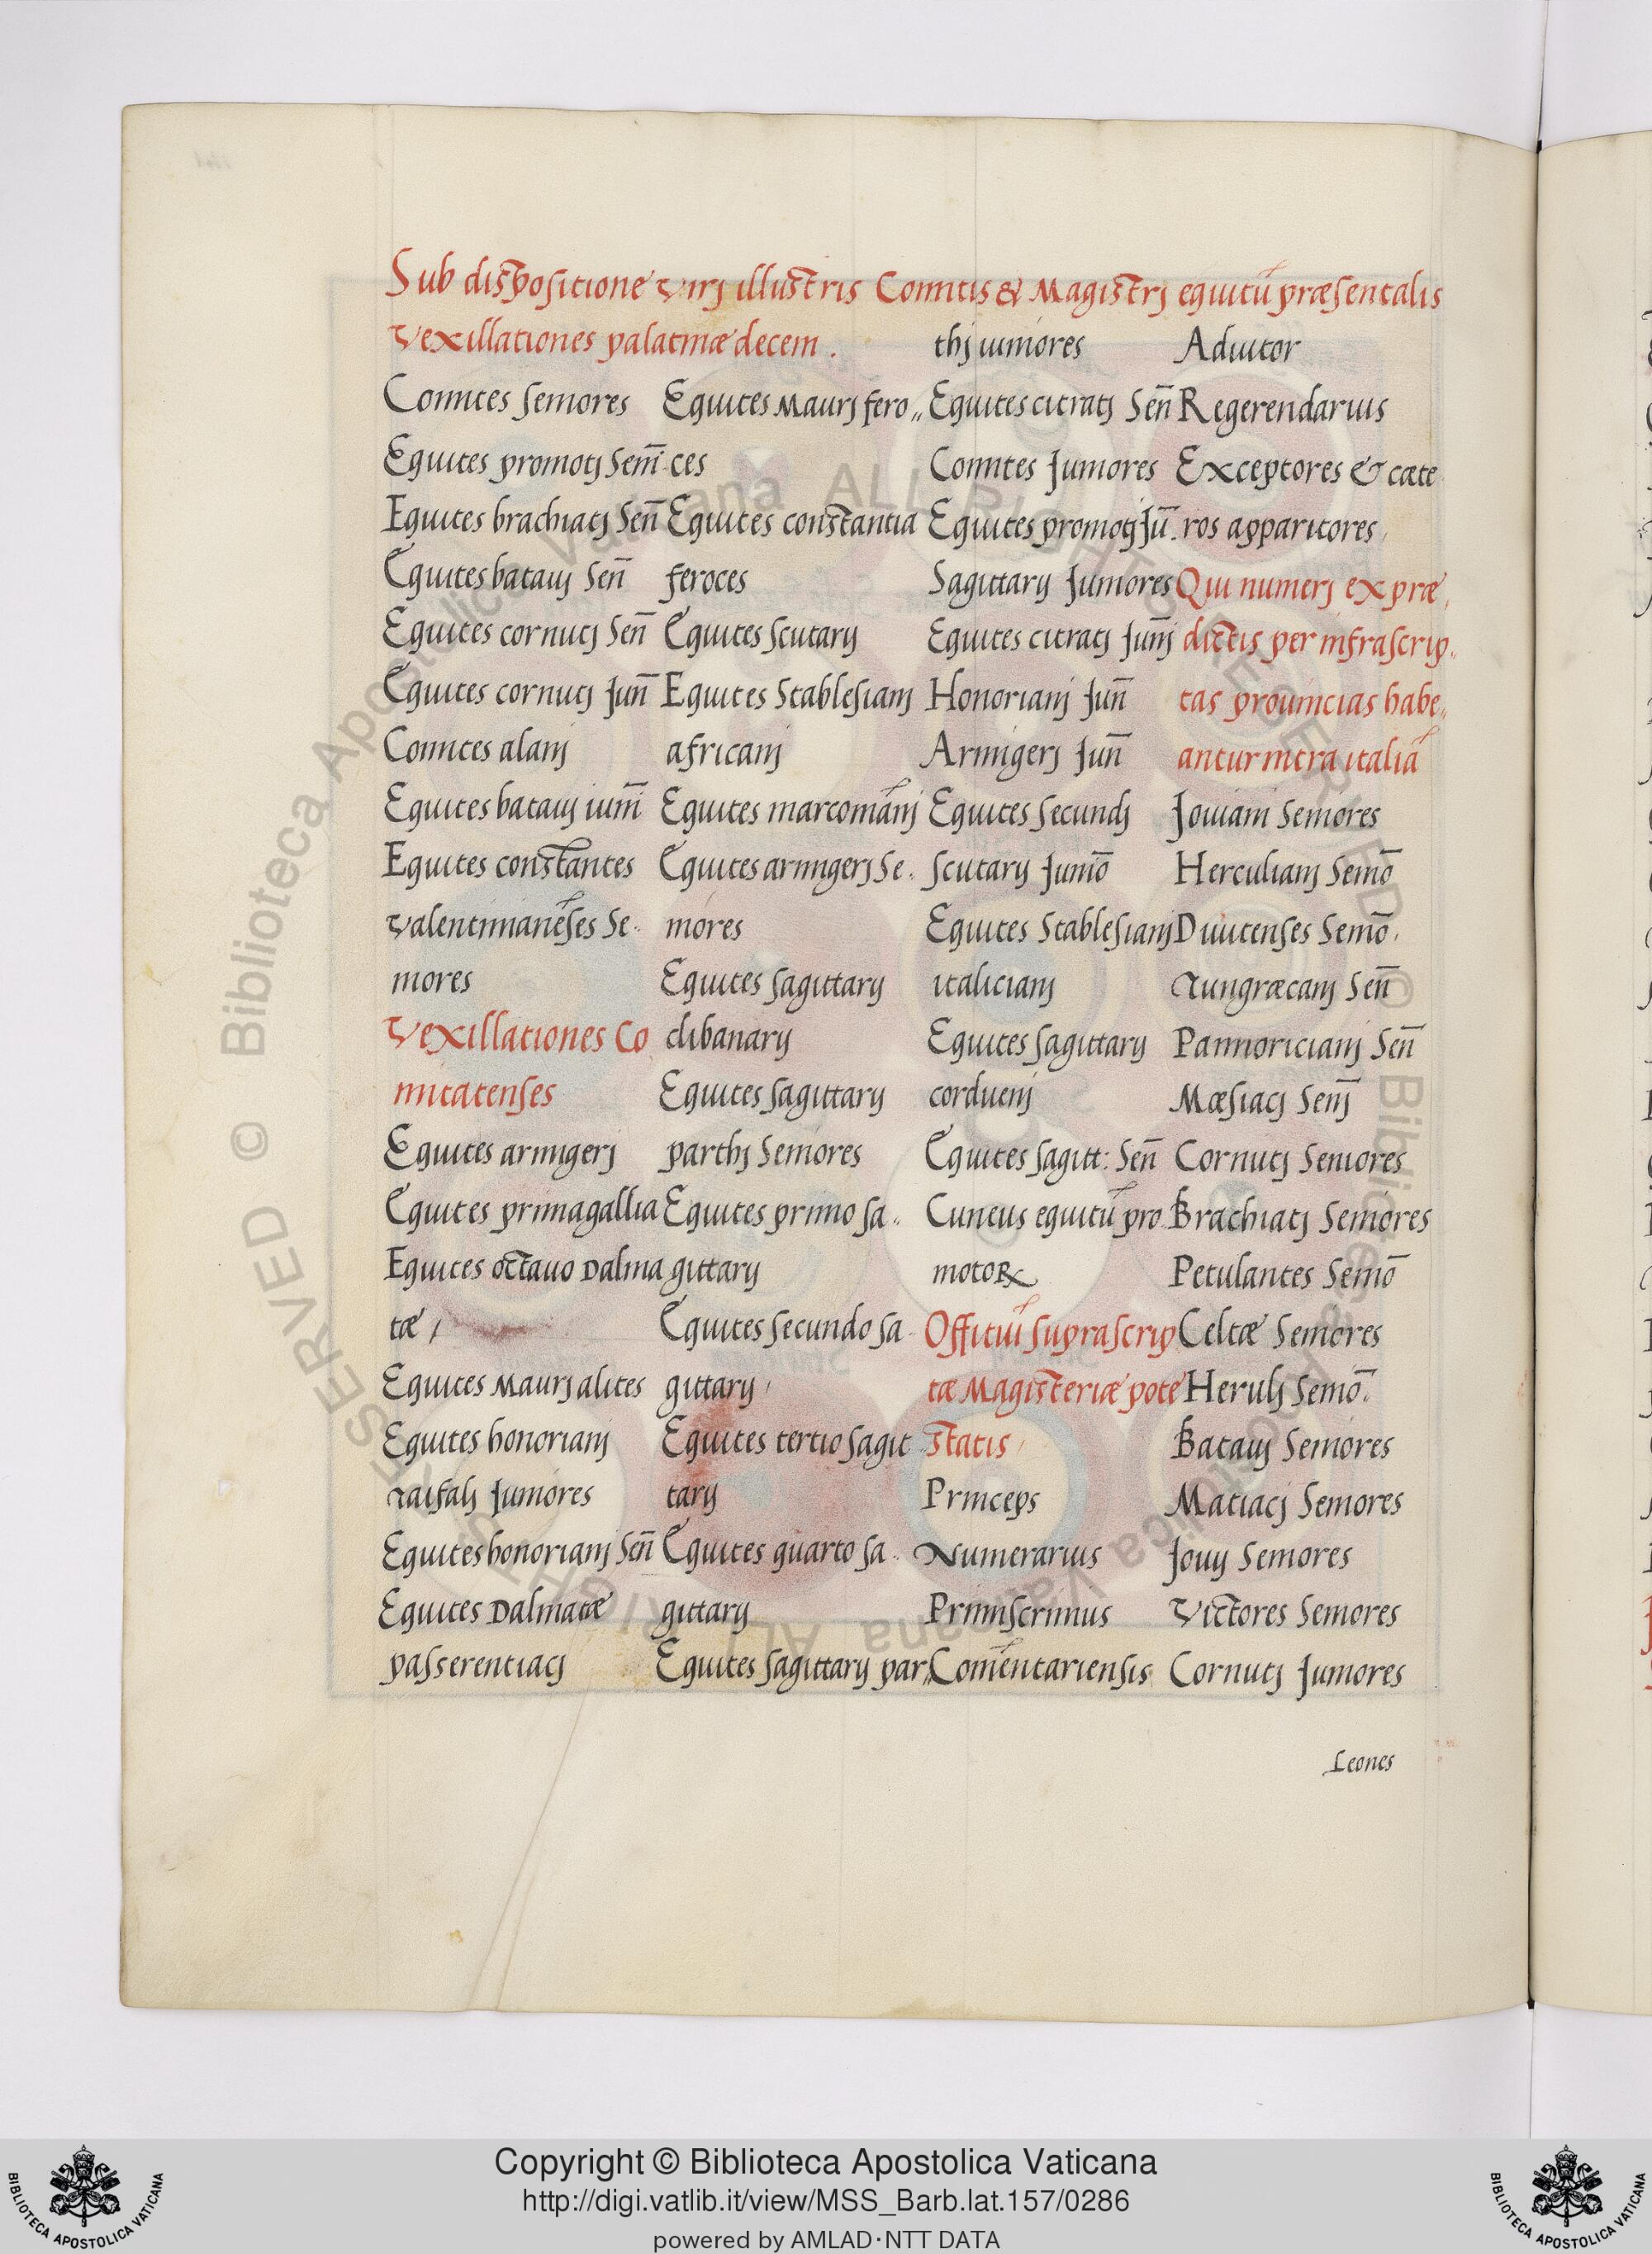 Sub dispositione virj illustris Comitis & Magistrj equitū præsentalis
Vexillationes palatinæ decem.
Comites Seniores
Equites promotj Senī
Equites brachiatj Señ
Equites batauj Señ
Equites cornutj Señ
Equites cornutj Juñ
Comites alanj
Equites batauj iunī
Equites constantes
Valentinianēses Se
niores
Vexillationes Co
mitatenses
Equites armigerj
Equites primagallia
Equites octauo Dalma
tæ
Equites Maurj alites
Equites honorianj
Taifalj Juniores
Equites honorianj Señ
Equites Dalmatæ
passerentiacj
Equites Maurj fero
ces
Equites constantia
feroces
Equites Scutarij
Equites Stablesianj
africanj
Equites marcomānj
Equites armigerj Se
niores
Equites Sagittarij
clibanarij
Equites Sagittarij
parthj Seniores
Equites primo Sa
gittarij
Equites secundo Sa
gittarij
Equites tertio Sagit
tarij
Equites quarto Sa
gittarij
Equites Sagittarij par
thj iuniores
Equites citratj Señ
Comites Juniores
Equites promotj Jū.
Sagittarij Juniores
Equites citratj Junīj
Honorianj Juñ
Armigerj Juñ
Equites Secundj
Scutarij Juniō
Equites Stablesianj
italicianj
Equites Sagittarij
corduenj
Equites Sagitt: Señ
Cuneus equitū pro
motoꝝ
Offitiū suprascrip
tæ Magisteriæ pote
statis
Princeps
Numerarius
Primiscrinius
Comētariensis
Adiutor
Regerendarius
Exceptores & cæte
ros apparitores
Qui numerj ex præ
dictis per infrascrip
tas prouincias habe
antur intra italiā
Jouiani Seniores
Herculianj Seniō
Diuitenses Seniō.
Tungræcanj Señ
Pannoricianj Señ
Mæsiacj Senj̄
Cornutj Seniores
Brachiatj Seniores
Petulantes Seniō
Celtæ Seniores
Herulj Seniō.
Batauj Seniores
Matiacj Seniores
Jouij Seniores
Victores Seniores
Cornutj Juniores
Leones
© Biblioteca Apostolica Vaticana ALL RIGHTS RESERVED © Biblioteca Apostolica Vaticana ALL RIGHTS RESERVED
Copyright © Biblioteca Apostolica Vaticana
http://digi.vatlib.it/view/MSS_Barb.lat.157/0286
powered by AMLAD·NTT DATA
BIBLIOTECA APOSTOLICA VATICANA
BIBLIOTECA APOSTOLICA VATICANA